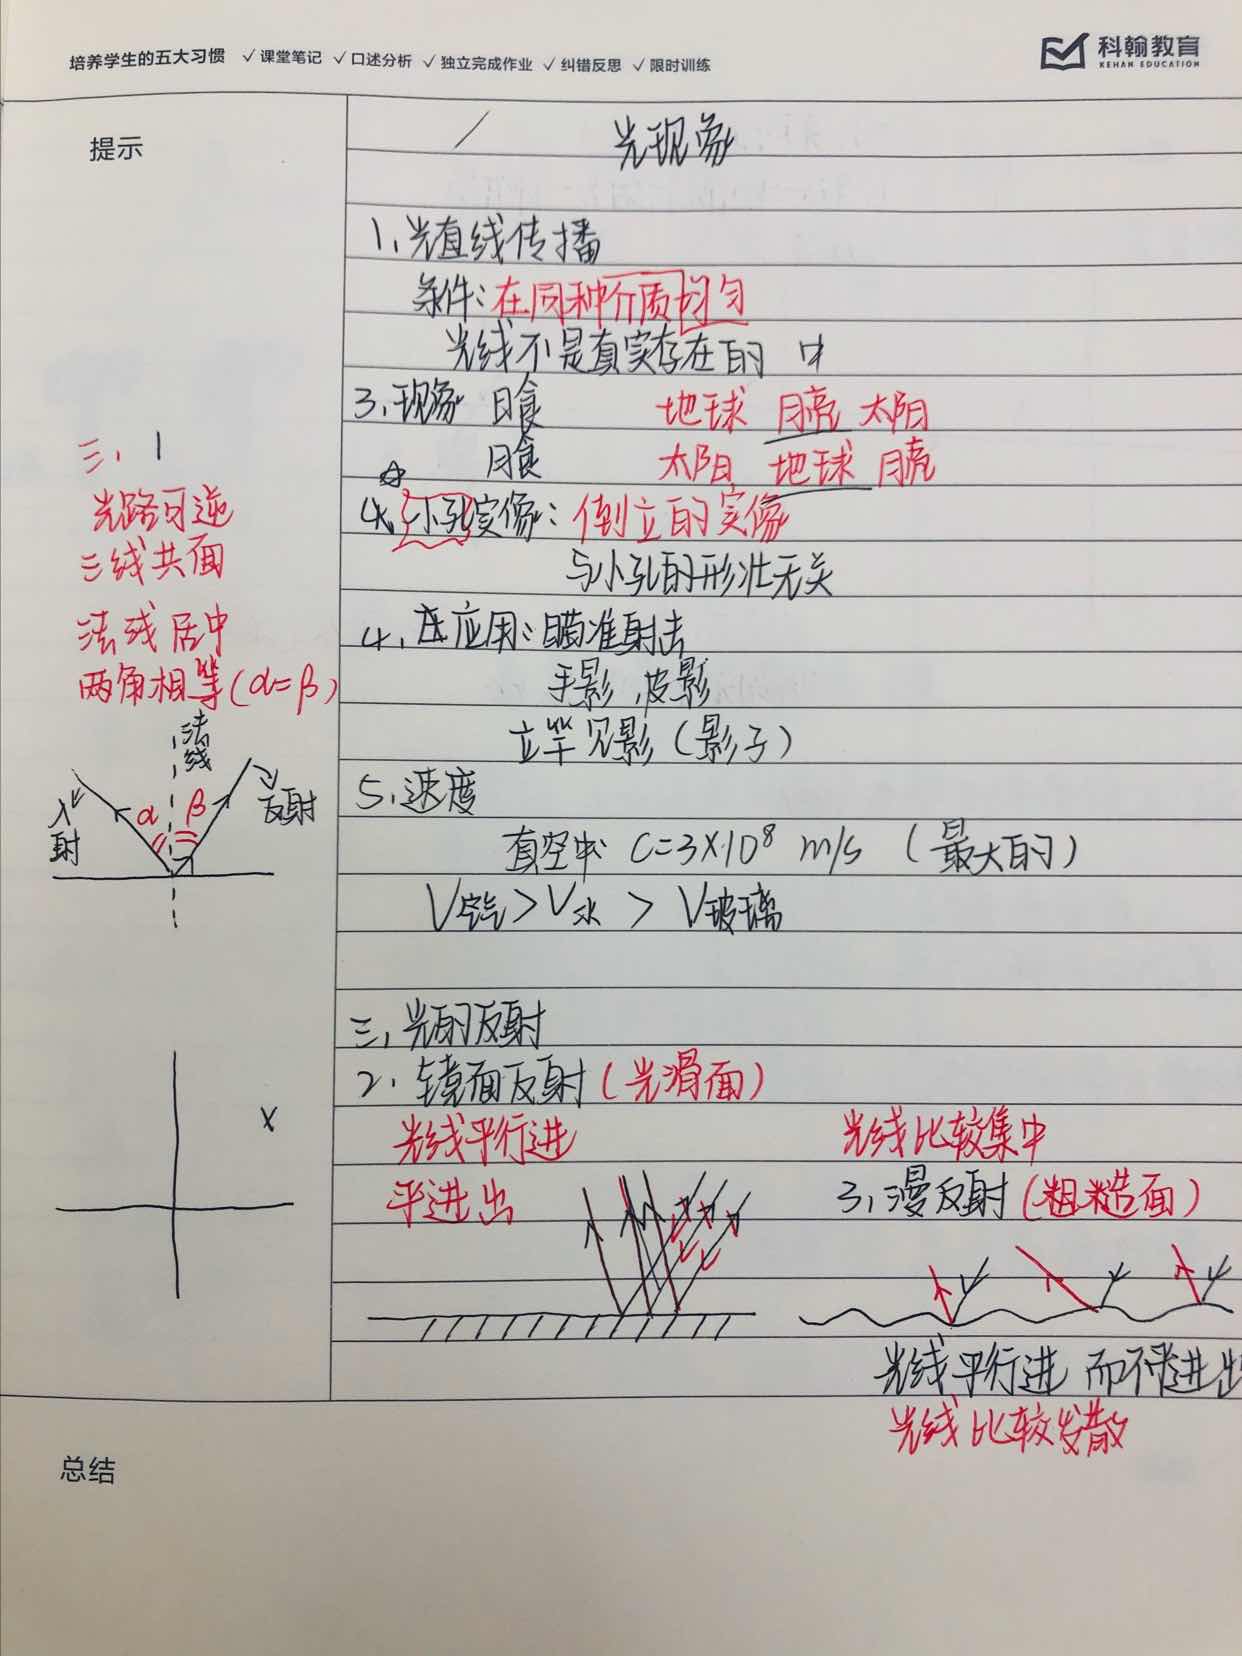 培养学生的五大习惯 ✓课堂笔记 ✓口述分析 ✓独立完成作业 ✓纠错反思 ✓限时训练
科翰教育
KEHAN EDUCATION
提示
光现象
1、光直线传播
条件：在同种介质均匀
光线不是真实存在的 中
3、现象 日食 地球 月亮 太阳
月食 太阳 地球 月亮
4、小孔实像：倒立的实像
与小孔的形状无关
4、应用：瞄准射击
手影，皮影
立竿见影（影子）
5、速度
真空中 C=3×10⁸ m/s （最大的）
V空气>V水 > V玻璃
三、1
光路可逆
三线共面
法线居中
两角相等(α=β)
法线
入射
α β
反射
三、光的反射
2、镜面反射（光滑面）
光线平行进
平进出
光线比较集中
3、漫反射（粗糙面）
X
光线平行进 而不平进出
光线比较发散
总结